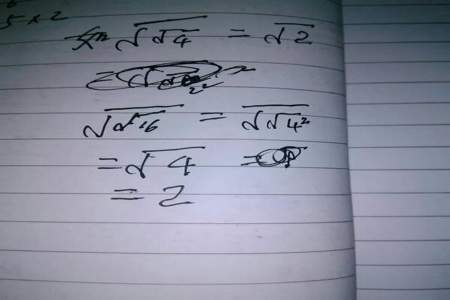 5 x 2
√√4 = √2
√√16 = √√4²
= √4 =
= 2